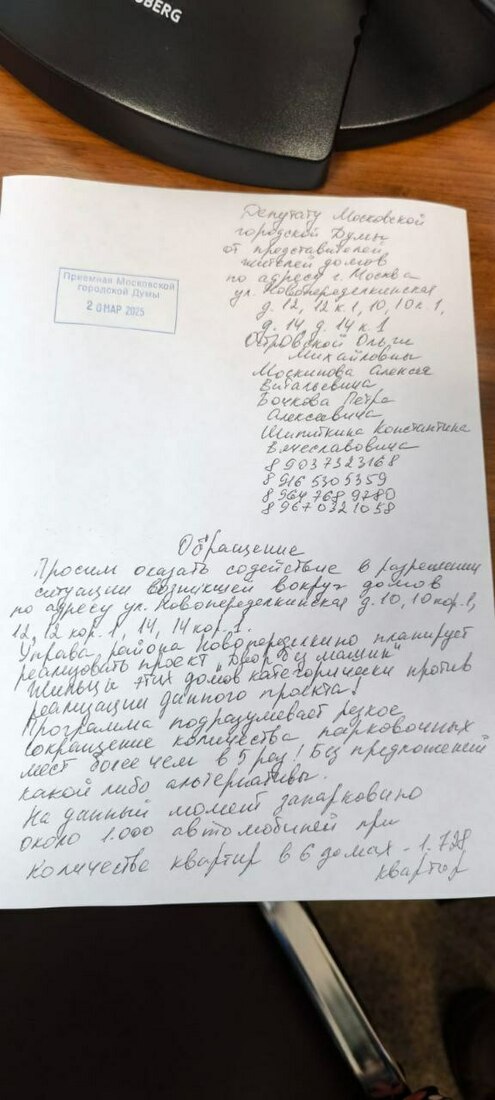 BERG
Приемная Московской
городской Думы
20 МАР 2025
Депутату Московской
городской Думы
от представителей
жителей домов
по адресу г. Москва
ул. Новопеределкинская
д. 12, 12 к 1, 10, 10 к. 1,
д. 14, д. 14 к. 1
Островской Ольги
Михайловны
Москинова Алексея
Витальевича
Бочкова Петра
Алексеевича
Шипиткина Константина
Вячеславовича
8 903 7323168
8 916 5305359
8 964 768 9780
8 967 0321058
Обращение
Просим оказать содействие в разрешении
ситуации возникшей вокруг домов
по адресу ул. Новопеределкинская д. 10, 10 кор. 1,
12, 12 кор. 1, 14, 14 кор. 1.
Управа района Новопеределкино планирует
реализовать проект "Двор без машин"
Жильцы этих домов категорически против
реализации данного проекта!
Программа подразумевает резкое
сокращение количества парковочных
мест более чем в 5 раз! Без предложений
какой либо альтернативы.
На данный момент запарковано
около 1.000 автомобилей при
количестве квартир в 6 домах - 1.728
квартир